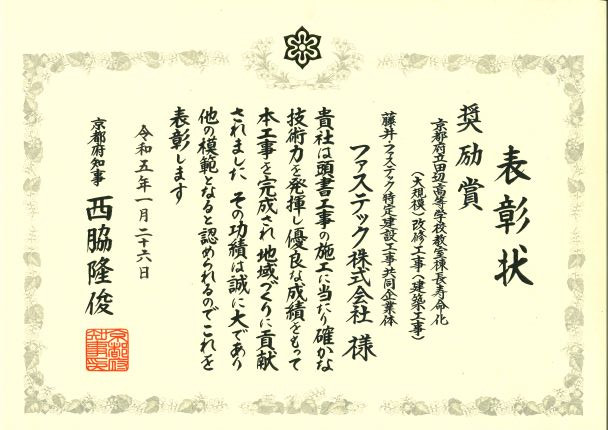 表彰状
奨励賞
京都府立田辺高等学校教室棟長寿命化
(大規模)改修工事(建築工事)
藤井・ファステック特定建設工事共同企業体
ファステック株式会社 様
貴社は頭書工事の施工に当たり確かな
技術力を発揮し優良な成績をもって
本工事を完成され地域づくりに貢献
されました その功績は誠に大であり
他の模範となると認められるのでこれを
表彰します
令和五年一月二十六日
京都府知事 西脇隆俊
京都府知事之印